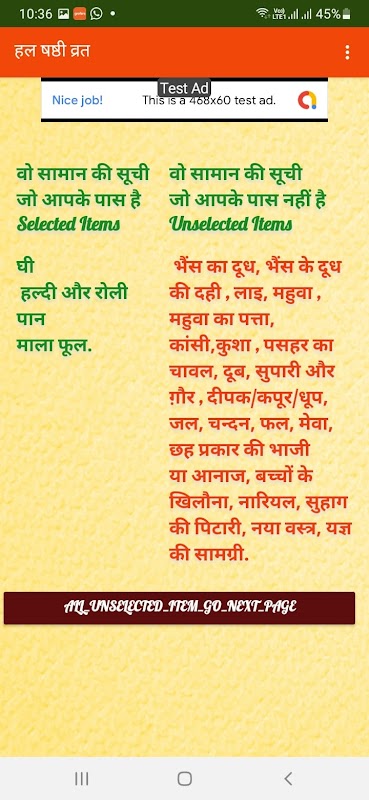 10:36
45%
हल षष्ठी व्रत
Test Ad
Nice job!
This is a 468x60 test ad.
वो सामान की सूची
जो आपके पास है
Selected Items
घी
हल्दी और रोली
पान
माला फूल.
वो सामान की सूची
जो आपके पास नहीं है
Unselected Items
भैंस का दूध, भैंस के दूध
की दही , लाइ, महुवा ,
महुवा का पत्ता,
कांसी,कुशा , पसहर का
चावल, दूब, सुपारी और
ग़ौर , दीपक/कपूर/धूप,
जल, चन्दन, फल, मेवा,
छह प्रकार की भाजी
या आनाज, बच्चों के
खिलौना, नारियल, सुहाग
की पिटारी, नया वस्त्र, यज्ञ
की सामग्री.
ALL_UNSELECTED_ITEM_GO_NEXT_PAGE